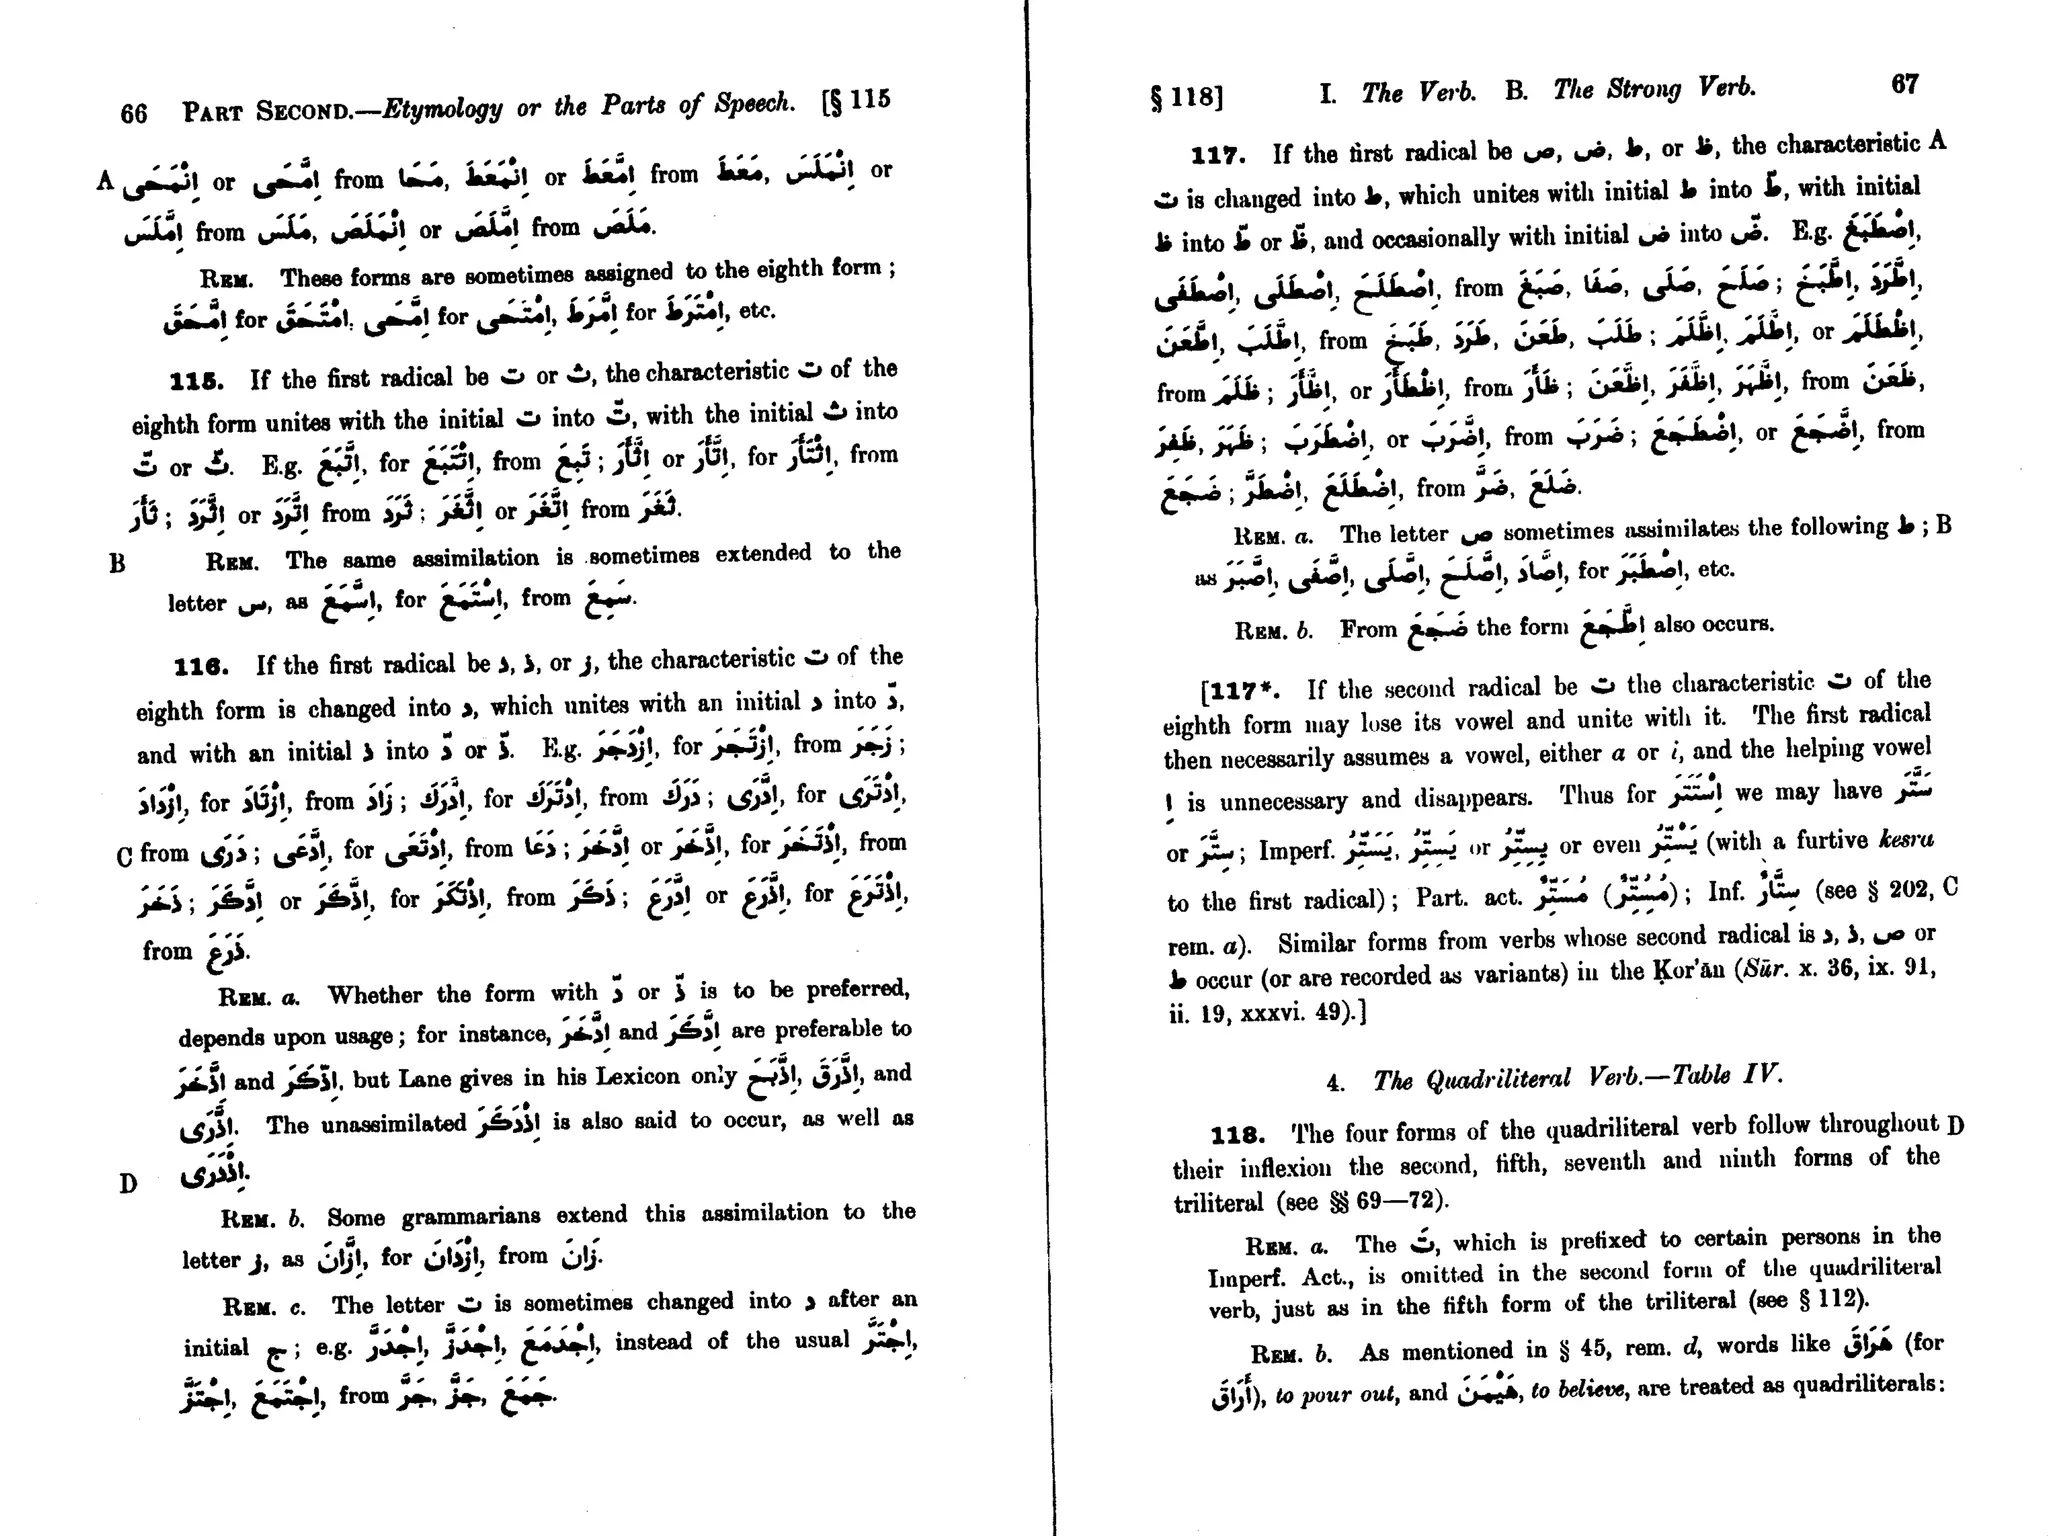 66 PART SECOND.—Etymology or the Parts of Speech. [§ 115
A اِنْمَحَى or اِمَّحَى from مَحَا, اِنْمَعَطَ or اِمَّعَطَ from مَعَطَ, اِنْمَلَسَ or
اِمَّلَسَ from مَلَسَ, اِنْمَلَصَ or اِمَّلَصَ from مَلَصَ.
REM. These forms are sometimes assigned to the eighth form ;
اِمَّحَقَ for اِمْتَحَقَ, اِمَّحَى for اِمْتَحَى, اِمَّرَطَ for اِمْتَرَطَ, etc.
115. If the first radical be ت or ث, the characteristic ت of the
eighth form unites with the initial ت into تّ, with the initial ث into
تّ or ثّ. E.g. اِتَّبَعَ, for اِتْتَبَعَ, from تَبِعَ ; اِثَّأَرَ or اِتَّأَرَ, for اِثْتَأَرَ, from
ثَأَرَ ; اِثَّرَدَ or اِتَّرَدَ from ثَرَدَ ; اِثَّغَرَ or اِتَّغَرَ from ثَغَرَ.
B REM. The same assimilation is sometimes extended to the
letter س, as اِسَّمَعَ, for اِسْتَمَعَ, from سَمِعَ.
116. If the first radical be د, ذ, or ز, the characteristic ت of the
eighth form is changed into د, which unites with an initial د into دّ,
and with an initial ذ into دّ or ذّ. E.g. اِزْدَجَرَ, for اِزْتَجَرَ, from زَجَرَ ;
اِزْدَادَ, for اِزْتَادَ, from زَادَ ; اِدَّرَكَ, for اِدْتَرَكَ, from دَرَكَ ; اِدَّرَى, for اِدْتَرَى,
C from دَرَى ; اِدَّعَى, for اِدْتَعَى, from دَعَا ; اِدَّخَرَ or اِذَّخَرَ, for اِذْتَخَرَ, from
ذَخَرَ ; اِدَّكَرَ or اِذَّكَرَ, for اِذْتَكَرَ, from ذَكَرَ ; اِدَّرَعَ or اِذَّرَعَ, for اِذْتَرَعَ,
from ذَرَعَ.
REM. a. Whether the form with دّ or ذّ is to be preferred,
depends upon usage ; for instance, اِدَّخَرَ and اِدَّكَرَ are preferable to
اِذَّخَرَ and اِذَّكَرَ, but Lane gives in his Lexicon only اِذَّبَحَ, اِذَّرَقَ, and
اِذَّرَى. The unassimilated اِذْدَكَرَ is also said to occur, as well as
D اِذْدَرَى.
REM. b. Some grammarians extend this assimilation to the
letter ز, as اِزَّانَ, for اِزْدَانَ, from زَانَ.
REM. c. The letter ت is sometimes changed into د after an
initial ج ; e.g. اِجْدَرَّ, اِجْدَزَّ, اِجْدَمَعَ, instead of the usual اِجْتَرَّ,
اِجْتَزَّ, اِجْتَمَعَ, from جَرَّ, جَزَّ, جَمَعَ.
§ 118] I. The Verb. B. The Strong Verb. 67
117. If the first radical be ص, ض, ط, or ظ, the characteristic A
ت is changed into ط, which unites with initial ط into طّ, with initial
ظ into طّ or ظّ, and occasionally with initial ض into ضّ. E.g. اِصْطَبَغَ,
اِصْطَفَى, اِصْطَلَى, اِصْطَلَحَ, from صَبَغَ, صَفَا, صَلَى, صَلَحَ ; اِطَّبَخَ, اِطَّرَدَ,
اِطَّعَنَ, اِطَّلَبَ, from طَبَخَ, طَرَدَ, طَعَنَ, طَلَبَ ; اِظَّلَمَ, اِطَّلَمَ, or اِظْطَلَمَ,
from ظَلَمَ ; اِظَّأَرَ, or اِظْطَأَرَ, from ظَأَرَ ; اِظَّعَنَ, اِظَّفَرَ, اِظَّهَرَ, from ظَعَنَ,
ظَفِرَ, ظَهَرَ ; اِضْطَرَبَ, or اِضَّرَبَ, from ضَرَبَ ; اِضْطَجَعَ, or اِضَّجَعَ, from
ضَجَعَ ; اِضْطَرَّ, اِضْطَلَعَ, from ضَرَّ, ضَلَعَ.
REM. a. The letter ص sometimes assimilates the following ط ; B
as اِصَّبَرَ, اِصَّفَى, اِصَّلَى, اِصَّلَحَ, اِصَّادَ, for اِصْطَبَرَ, etc.
REM. b. From ضَجَعَ the form اِطَّجَعَ also occurs.
[117*. If the second radical be ت the characteristic ت of the
eighth form may lose its vowel and unite with it. The first radical
then necessarily assumes a vowel, either a or i, and the helping vowel
اِ is unnecessary and disappears. Thus for اِسْتَتَرَ we may have سَتَّرَ
or سِتَّرَ ; Imperf. يَسَتِّرُ, يَسِتِّرُ or يِسِتِّرُ or even يَسْتِّرُ (with a furtive kesra
to the first radical) ; Part. act. مُسَتِّرٌ (مُسُتِّرٌ) ; Inf. سِتَّارٌ (see § 202, C
rem. a). Similar forms from verbs whose second radical is د, ذ, ص or
ط occur (or are recorded as variants) in the Ḳor'ân (Sūr. x. 36, ix. 91,
ii. 19, xxxvi. 49).]
4. The Quadriliteral Verb.—Table IV.
118. The four forms of the quadriliteral verb follow throughout D
their inflexion the second, fifth, seventh and ninth forms of the
triliteral (see §§ 69—72).
REM. a. The تَ, which is prefixed to certain persons in the
Imperf. Act., is omitted in the second form of the quadriliteral
verb, just as in the fifth form of the triliteral (see § 112).
REM. b. As mentioned in § 45, rem. d, words like هَرَاقَ (for
أَرَاقَ), to pour out, and هَيْمَنَ, to believe, are treated as quadriliterals :